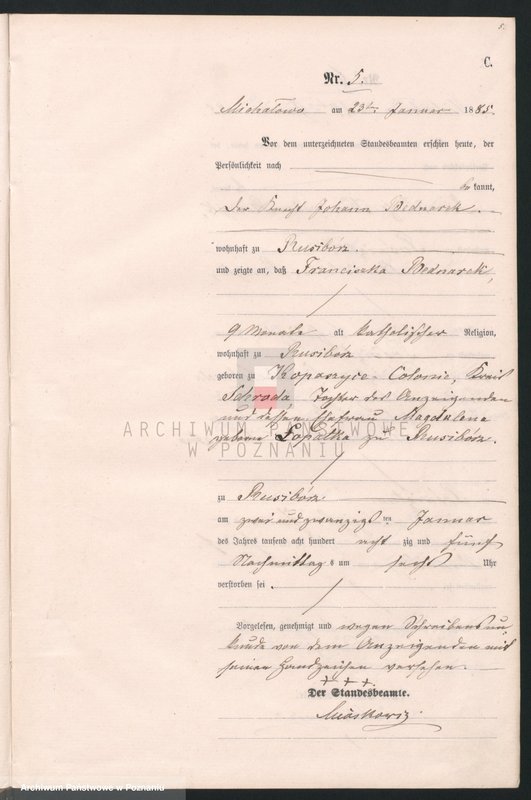 5.
C.
Nr. 5.
Michałowo am 23ten Januar 1885.
Vor dem unterzeichneten Standesbeamten erschien heute, der
Persönlichkeit nach
bekannt,
der Knecht Johann Bednarek.
wohnhaft zu Rusibórz.
und zeigte an, daß Franciszka Bednarek,
9 Monate alt katholischer Religion,
wohnhaft zu Rusibórz
geboren zu Koparzyce Colonie, Kreis
Schroda, Tochter des Anzeigenden
und dessen Ehefrau Magdalena
geborne Łopatka zu Rusibórz.
ARCHIWUM PAŃSTWOWE
W POZNANIU
zu Rusibórz
am zwei und zwanzigsten Januar
des Jahres tausend acht hundert acht zig und fünf
Nachmittags um sechs Uhr
verstorben sei
Vorgelesen, genehmigt und wegen Schreibensun-
kunde von dem Anzeigenden mit
seinen Handzeichen versehen.
+ + +
Der Standesbeamte.
Archiwum Państwowe w Poznaniu